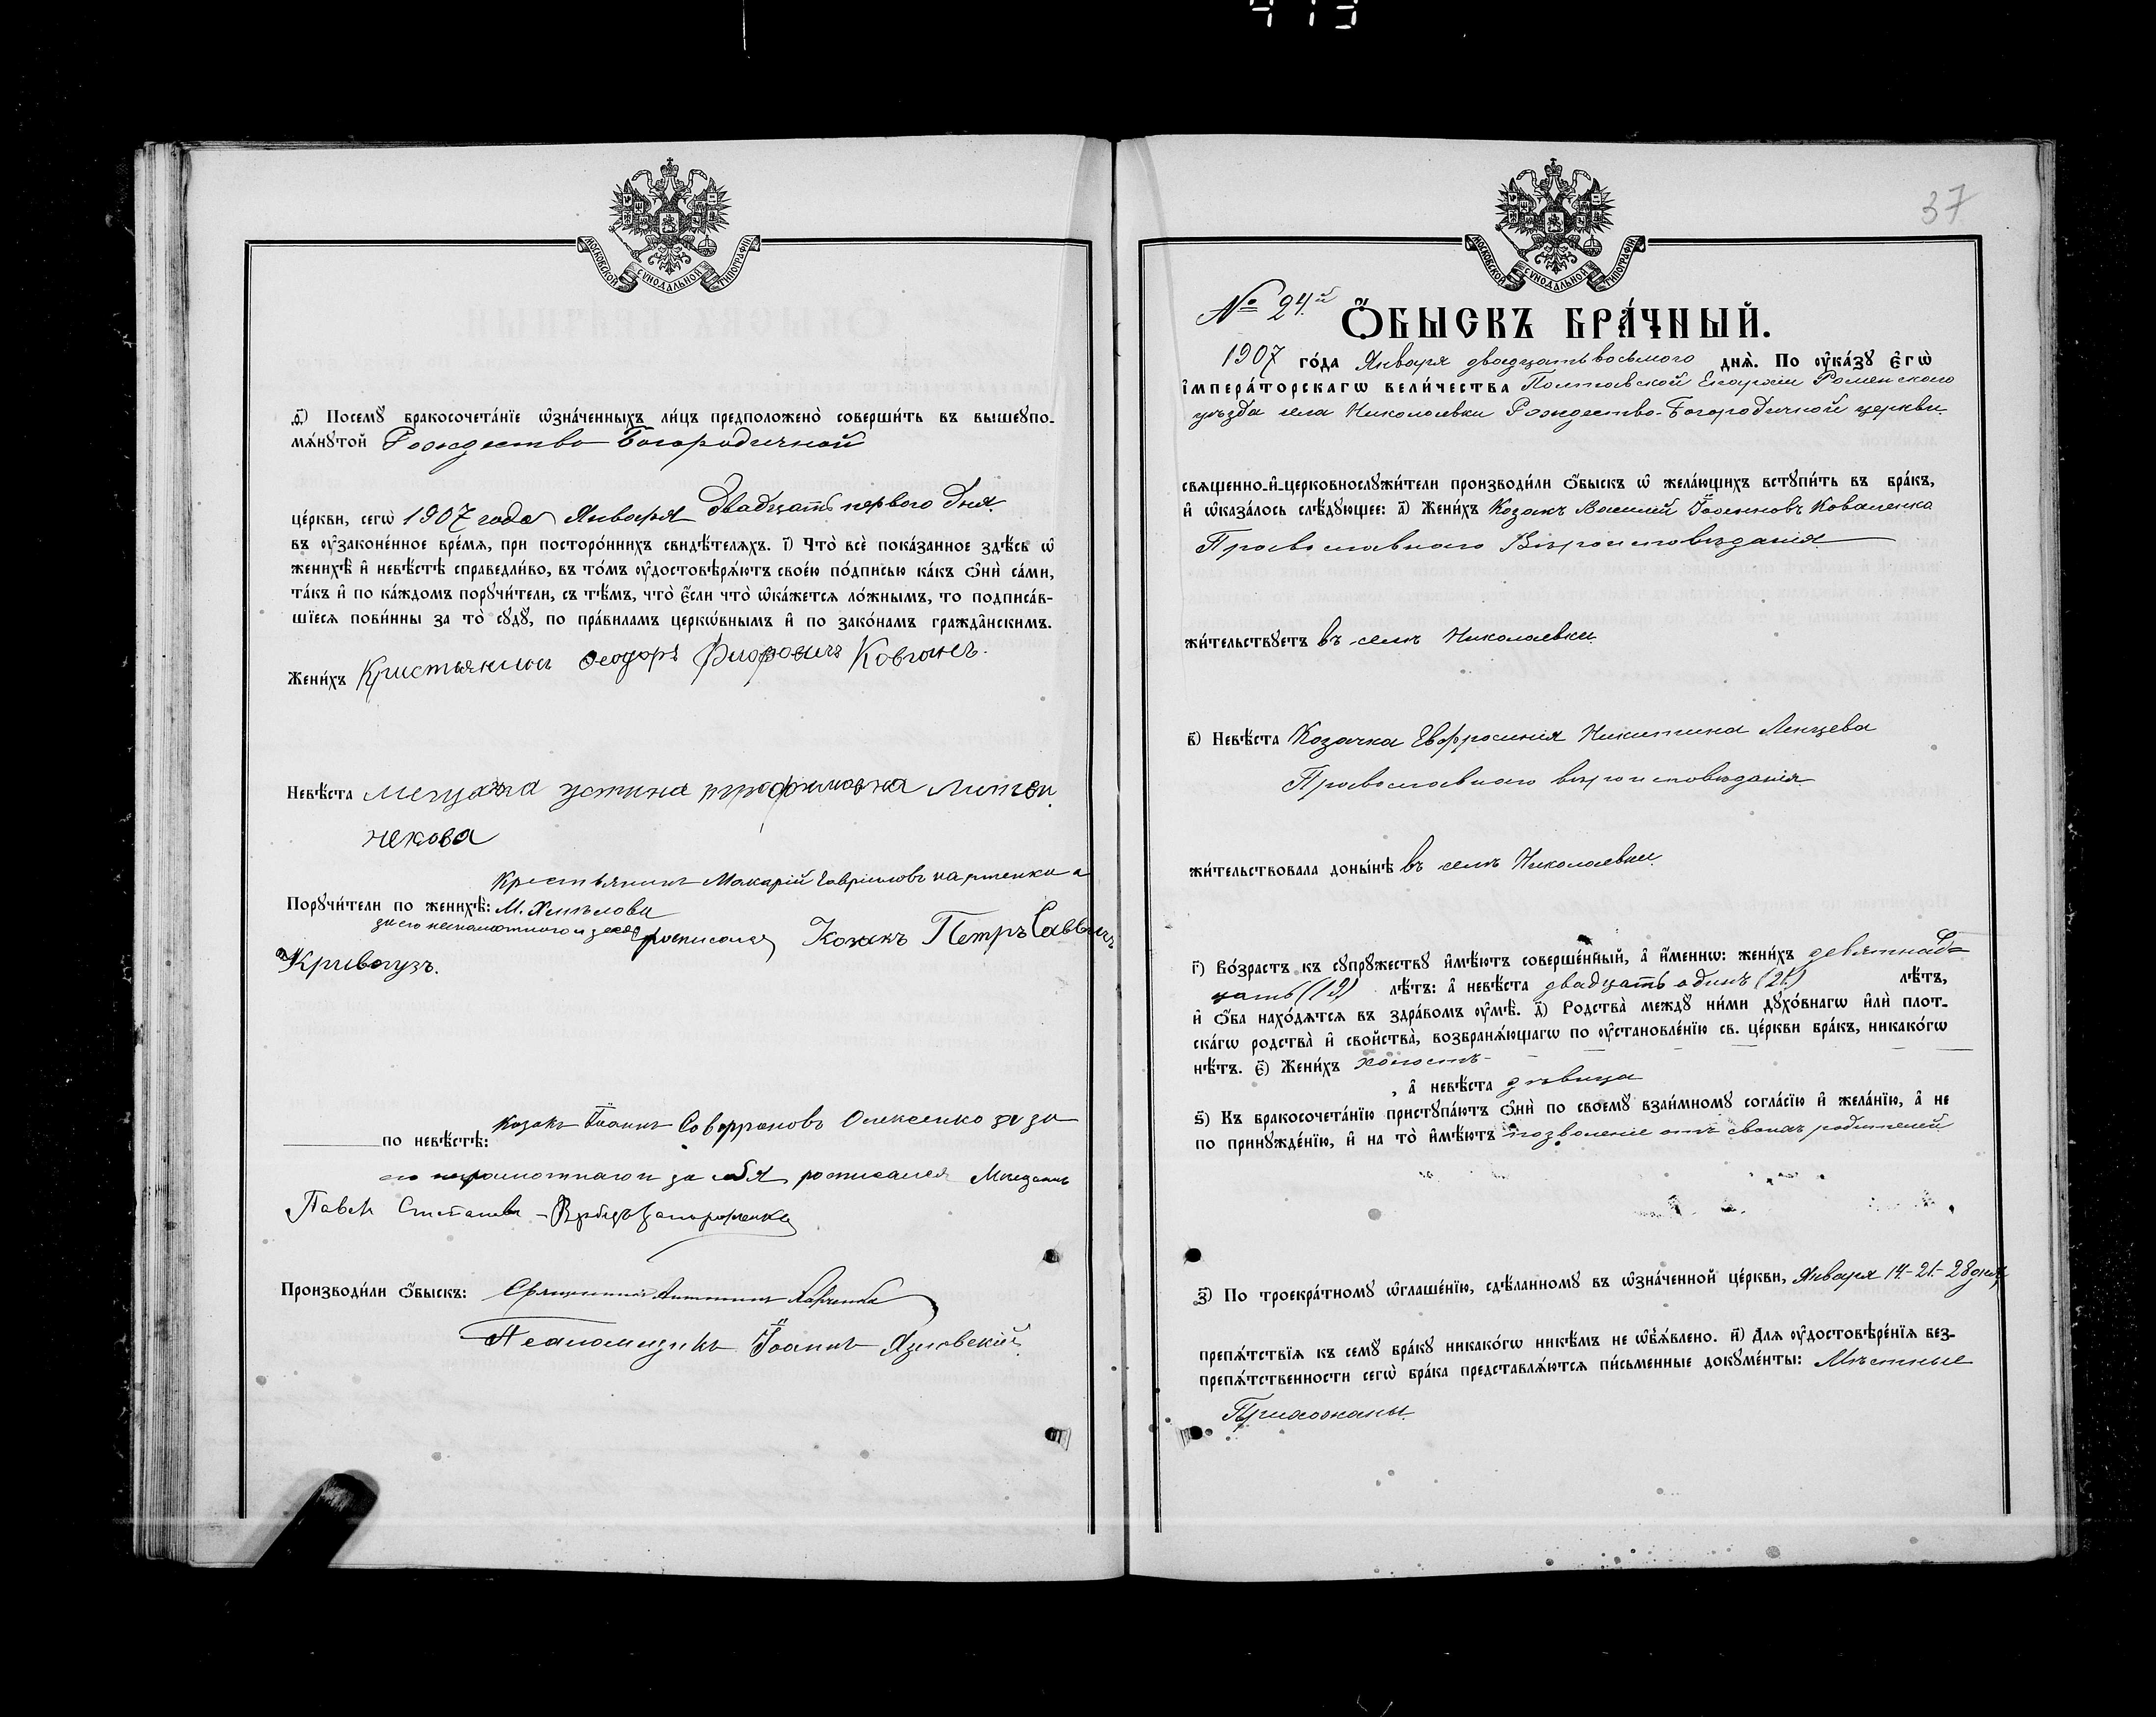 МОСКОВСКОЙ СУНОДАЛЬНОЙ ТИПОГРАФІИ
ѳ҃) Посемꙋ̀ бракосочета́нїе ѡ҆зна́ченныхъ ли́цъ предположено̀ соверши́ть въ вышеꙋпо-
мѧ́нꙋтой Рождество-Богородичной
це́ркви, сегѡ̀ 1907 года Января двадцать первого дня
въ ᲂу҆законе́нное вре́мѧ, при посторо́ннихъ свидѣ́телѧхъ. і҃) Что̀ всѐ пока́занное здѣ́сь ѡ҆
женихѣ̀ и҆ невѣ́стѣ справедли́во, въ то́мъ ᲂу҆достовѣрѧ́ютъ свое́ю по́дписью ка́къ ѻ҆нѝ са́ми,
та́къ и҆ по ка́ждомъ порꙋчи́тели, съ тѣ́мъ, что̀ є҆́сли что̀ ѡ҆ка́жетсѧ ло́жнымъ, то подписа́в-
шїесѧ пови́нны за то̀ сꙋдꙋ̀, по пра́виламъ церкѡ́внымъ и҆ по зако́намъ гражда́нскимъ.
Жени́хъ Кристьянин Ѳеодоръ
Невѣ́ста
Крестьянинъ Макарій Гавріиловъ
Порꙋчи́тели по женихѣ̀:
росписался Козакъ Петръ Саввичъ
Кривогузъ.
по невѣ́стѣ: Козакъ Іоаннъ Олексенко
за себя росписался Мещанинъ
Павелъ
Производи́ли ѻ҆́быскъ: Священникъ
Псаломщикъ Іоаннъ Язловскій
37
МОСКОВСКОЙ СУНОДАЛЬНОЙ ТИПОГРАФІИ
№ 24й ѺБЫСКЪ БРА́ЧНЫЙ.
1907 го́да Января двадцать восьмого днѧ̀. По ᲂу҆ка́зꙋ є҆гѡ̀
і҆мпера́торскагѡ вели́чества Полтавской Епархіи Роменского
уѣзда села Николаевки Рождество-Богородичной церкви
свѧщенно-и҆-церковнослꙋжи́тели производи́ли ѻ҆́быскъ ѡ҆ жела́ющихъ встꙋпи́ть въ бра́къ,
и҆ ѡ҆каза́лось слѣ́дꙋющее: а҃) Жени́хъ Козакъ Василій Іоанновъ Коваленко
Православного Вѣроисповѣданія
жи́тельствꙋетъ въ селѣ Николаевки
в҃) Невѣ́ста Козачка Евфросинія Никитина Ленцева
Православного вѣроисповѣданія
жи́тельствовала доны́нѣ въ селѣ Николаевки
г҃) Во́зрастъ къ сꙋпрꙋ́жествꙋ и҆мѣ́ютъ соверше́нный, а҆ и҆́меннѡ: жени́хъ девятнад=
цать (19) лѣ́тъ: а҆ невѣ́ста двадцать одинъ (21) лѣ́тъ,
и҆ ѻ҆́ба нахо́дѧтсѧ въ здра́вомъ ᲂу҆мѣ̀. д҃) Родства̀ междꙋ ни́ми дꙋхо́внагѡ и҆лѝ плот-
ска́гѡ родства̀ и҆ сво́йства̀, возбранѧ́ющагѡ по ᲂу҆становле́нїю св. це́ркви бра́къ, никако́гѡ
нѣ́тъ. є҃) Жени́хъ холостъ
, а҆ невѣ́ста дѣвица
ѕ҃) Къ бракосочета́нїю пристꙋпа́ютъ ѻ҆нѝ по своемꙋ̀ взаи́мномꙋ согла́сїю и҆ жела́нїю, а҆ не
по принꙋжде́нїю, и҆ на то̀ и҆мѣ́ютъ позволеніе отъ своихъ родителей
з҃) По троекра́тномꙋ ѡ҆глаше́нїю, сдѣ́ланномꙋ въ ѡ҆зна́ченной це́ркви, Января 14-21-28 дня
препѧ́тствїѧ къ семꙋ̀ бра́кꙋ никако́гѡ никѣ́мъ не ѡ҆б̾ѧ́влено. и҃) Длѧ ᲂу҆достовѣре́нїѧ без-
препѧ́тственности сегѡ̀ бра́ка представлѧ́ютсѧ пи́сьменные докꙋме́нты: Мѣстные
Прихожаны